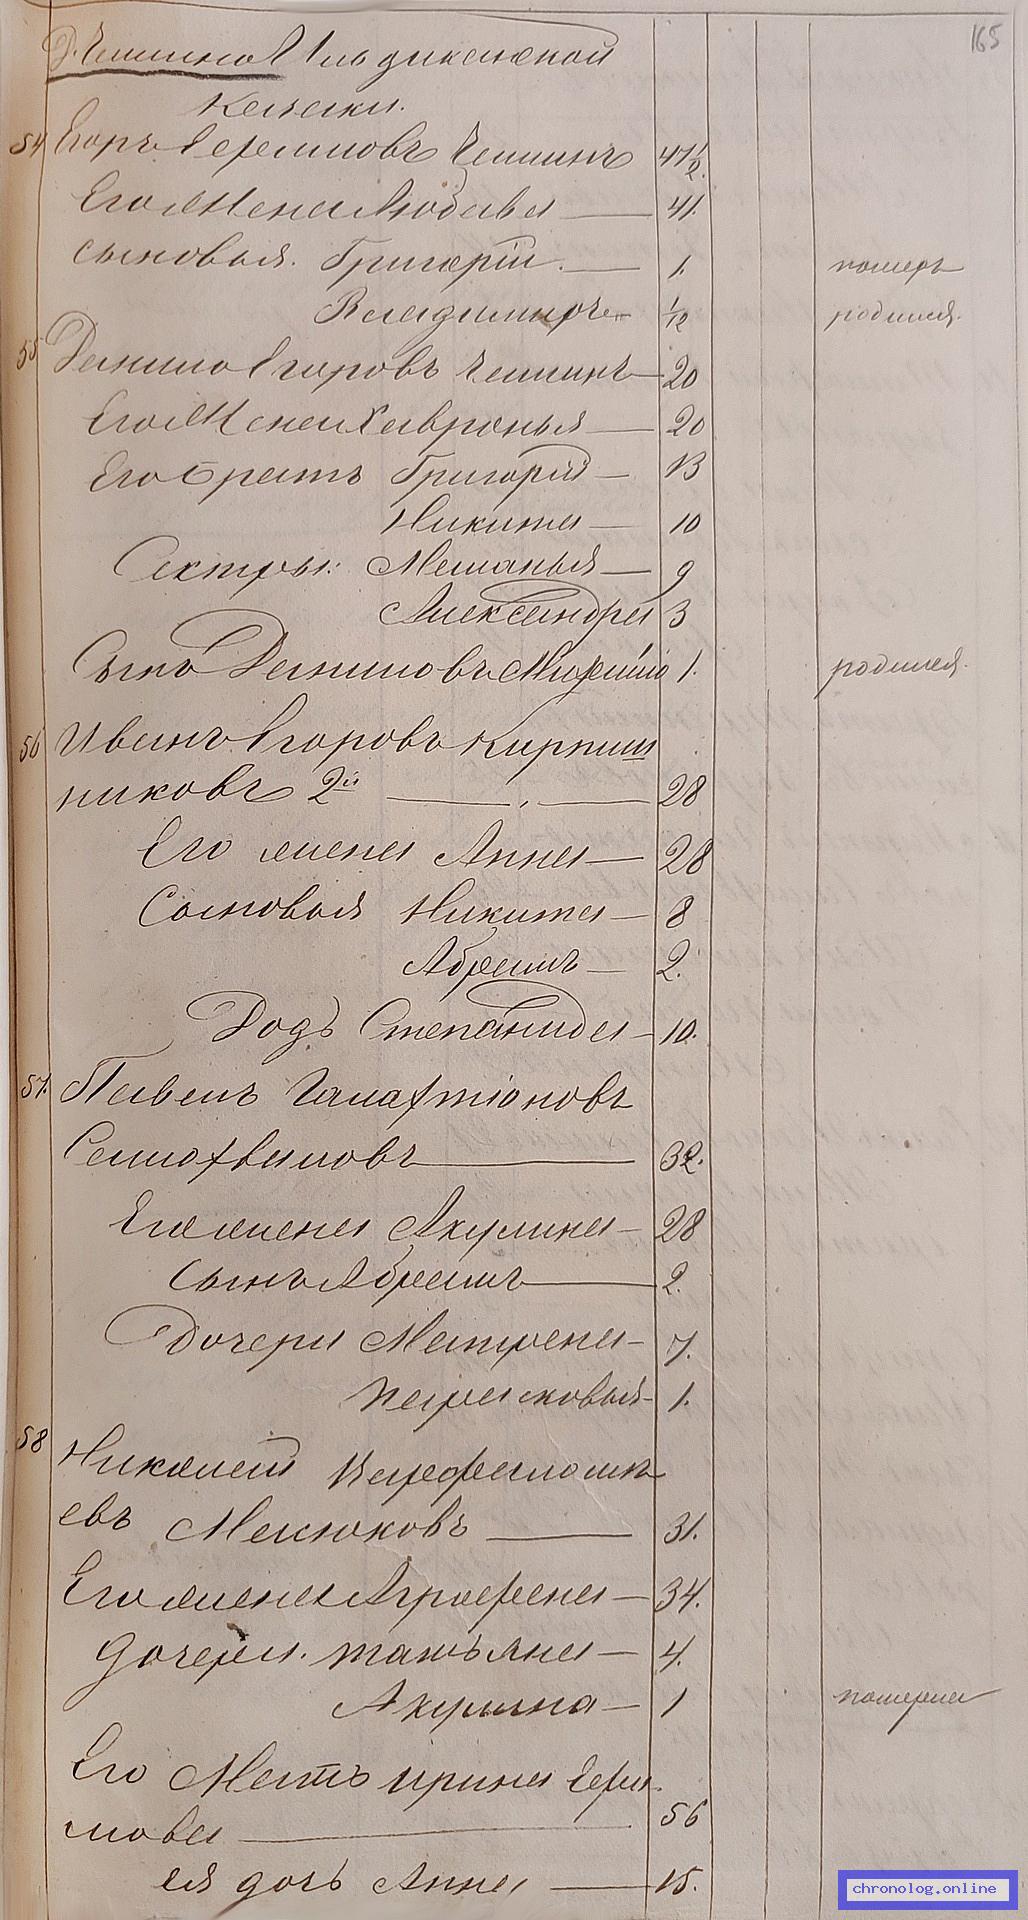 165
Д. Чемшина Ильдиканской
Казаки.
54 Егоръ Ефремовъ Чемшинъ 41½.
Его Жена Любава 41.
сыновья. Григорій. 1. померъ
Владимиръ 1/12 родился.
55 Данило Егоровъ Чемшинъ 20
Его Жена Хавронья 20
Его братъ Григорій 13
Никита 10
Сестры: Маланья 9
Александра 3
Сынъ Даниловъ 1. родился.
56 Иванъ Егоровъ Кирпиш
никовъ 2й 28
Его жена Анна 28
Сыновья Никита 8
Абрамъ 2.
Дочь Степанида 10.
57. Павелъ Галахтіоновъ
Самохваловъ 32.
Его жена Акулина 28
Сынъ Абрамъ 2.
Дочери Матрена 7.
Парасковья 1.
58 Николай Варфаломѣ
евъ Масюковъ 31.
Его жена Аграфена 34.
дочери. татьяна 4.
Акулина 1 померла
Его Мать ирина Ефи.
мова 56
ея дочь Анна 15.
chronolog.online